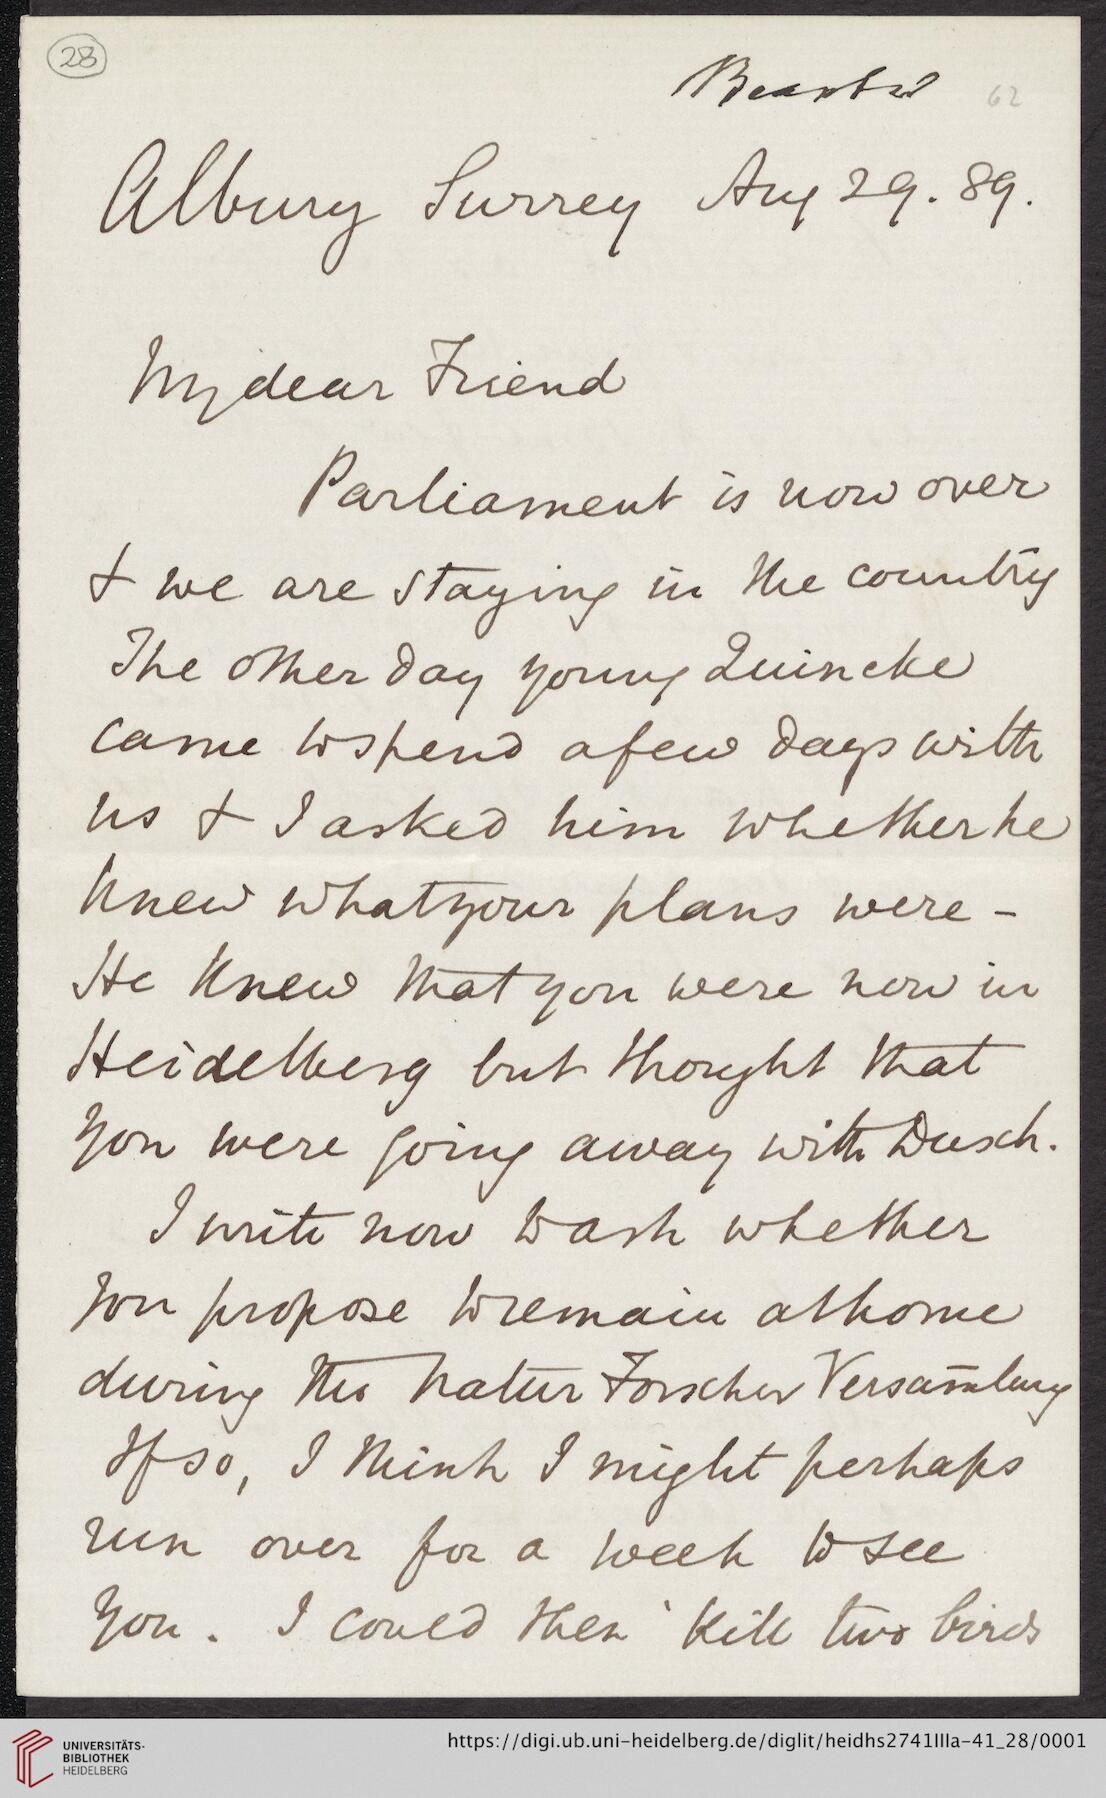 28
62
Albury Surrey Aug 29. 89.
My dear Friend
Parliament is now over
& we are staying in the country
The other day young Quincke
came to spend a few days with
us & I asked him whether he
knew what your plans were -
He knew that you were now in
Heidelberg but thought that
you were going away with Dusch.
I write now to ask whether
you propose to remain at home
during the Natur Forscher Versam̅lung
If so, I think I might perhaps
run over for a week to see
you. I could then 'kill two birds
UNIVERSITÄTS-
BIBLIOTHEK
HEIDELBERG
https://digi.ub.uni-heidelberg.de/diglit/heidhs2741IIIa-41_28/0001